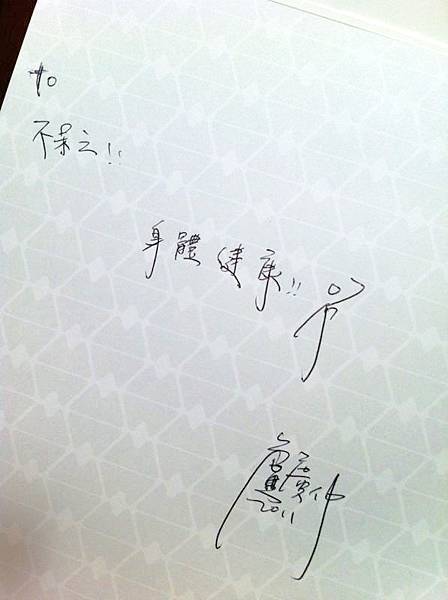 to
不呆!!
身體健康!!
盧廣仲
2011